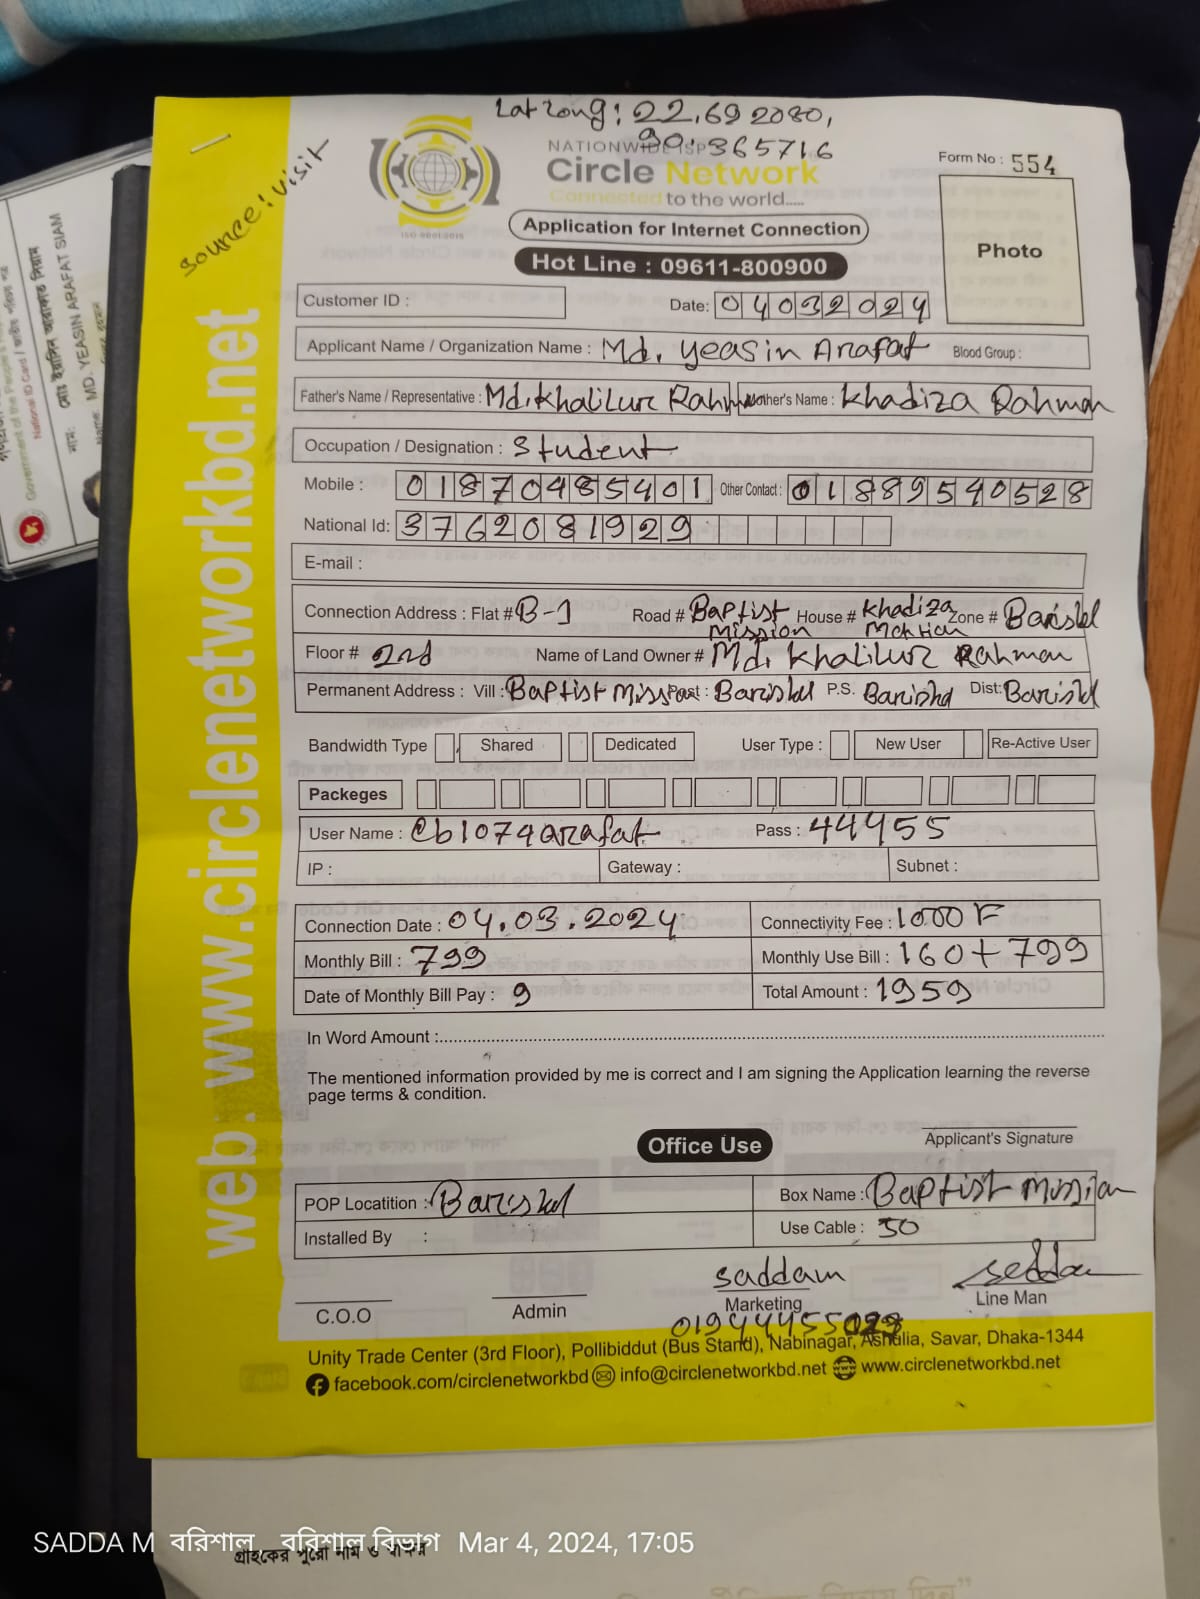 Lat Long: 22.692080,
90.365716
Source: Visit
NATIONWIDE ISP
Circle Network
Connected to the world.....
ISO 9001:2015
Form No : 554
Photo
Application for Internet Connection
Hot Line : 09611-800900
Customer ID :
Date: 04032024
Applicant Name / Organization Name : Md. Yeasin Arafat Blood Group :
Father's Name / Representative : Md. Khalilur Rahman Mother's Name : Khadiza Rahman
Occupation / Designation : Student
Mobile : 01870485401 Other Contact : 01889540528
National Id: 3762081929
E-mail :
Connection Address : Flat # B-1 Road # Baptist Mission House # Khadiza Zone # Barishal
Floor # 2nd Name of Land Owner # Md. Khalilur Rahman
Permanent Address : Vill : Baptist Miss Post : Barishal P.S. Barisha Dist: Barishal
Bandwidth Type Shared Dedicated User Type : New User Re-Active User
Packeges
User Name : Cb1074arafat Pass : 44455
IP : Gateway : Subnet :
Connection Date : 04.03.2024 Connectivity Fee : 1000 F
Monthly Bill : 799 Monthly Use Bill : 160+799
Date of Monthly Bill Pay : 9 Total Amount : 1959
In Word Amount :
The mentioned information provided by me is correct and I am signing the Application learning the reverse
page terms & condition.
Applicant's Signature
Office Use
POP Locatition : Barishal Box Name : Baptist Mission
Installed By : Use Cable : 50
saddam
C.O.O Admin Marketing Line Man
Unity Trade Center (3rd Floor), Pollibiddut (Bus Stand), Nabinagar, Ashulia, Savar, Dhaka-1344
facebook.com/circlenetworkbd info@circlenetworkbd.net www.circlenetworkbd.net
web: www.circlenetworkbd.net
National ID Card
নাম:
Name: MD. YEASIN ARAFAT SIAM
SADDA M বরিশাল, বরিশাল বিভাগ Mar 4, 2024, 17:05
গ্রাহকের পুরো নাম ও